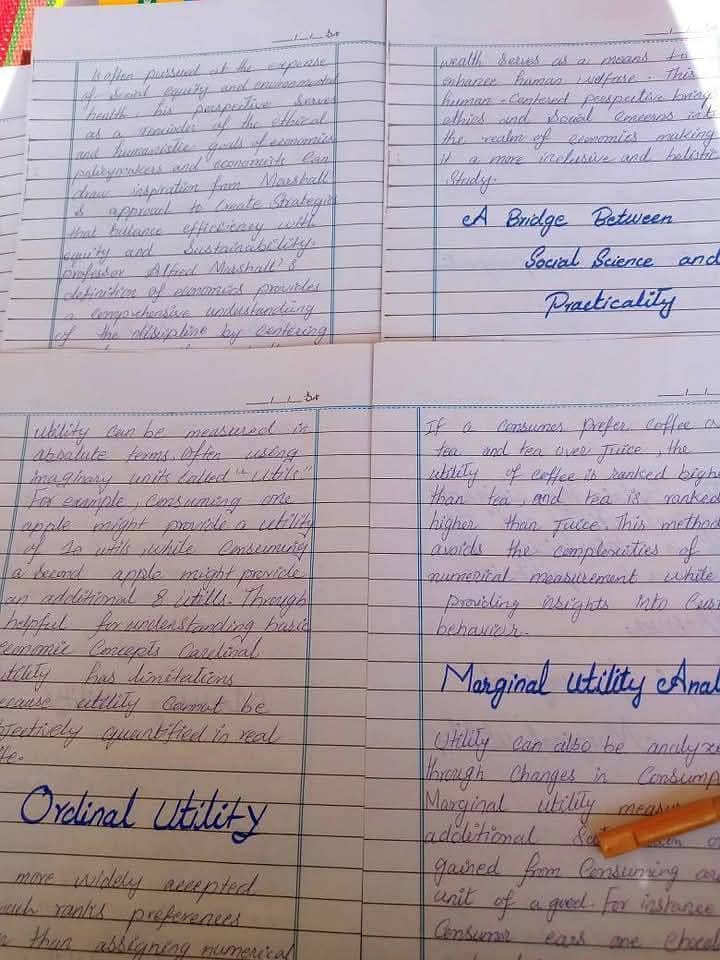 is often pursued at the expense
of social equity and environmental
health, his perspective serves
as a reminder of the ethical
and humanistic goals of economics
policymakers and economists can
draw inspiration from Marshall
's approach to create strategies
that balance efficiency with
equity and sustainability.
professor Alfred Marshall's
definition of economics provides
a comprehensive understanding
of the discipline by centering
wealth serves as a means to
enhance human welfare. This
human-centered perspective bring
ethics and social concerns int
the realm of economics making
it a more inclusive and holistic
study.
A Bridge Between
Social Science and
Practicality
utility can be measured in
absolute terms, often using
imaginary units called "utils"
For example, consuming one
apple might provide a utility
of 10 utils, while consuming
a second apple might provide
an additional 8 utills. Through
helpful for understanding basic
economic concepts cardinal
utility has limitations
because utility cannot be
quantified in real
Ordinal Utility
more widely accepted
ranks preferences
than assigning numerical
If a consumer prefer coffee o
tea and tea over Juice, the
utility of coffee is ranked high
than tea, and tea is ranked
higher than Juice. This method
avoids the complexities of
numerical measurement while
providing insights into
behavior.
Marginal Utility Anal
Utility can also be analyze
through changes in consump
Marginal utility measu
additional
gained from consuming
unit of a good. For instance
consumer eats one choco